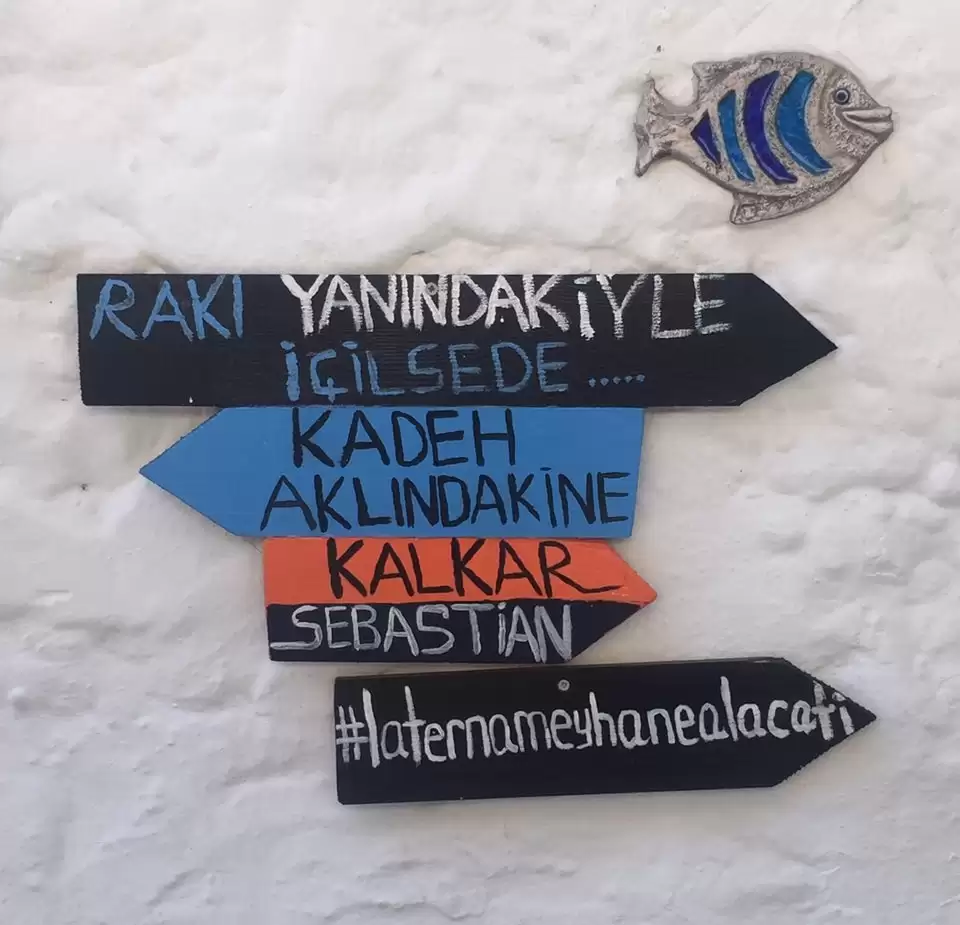 RAKI YANINDAKİYLE
İÇİLSEDE .....
KADEH
AKLINDAKİNE
KALKAR
SEBASTİAN
#laternameyhanealacati